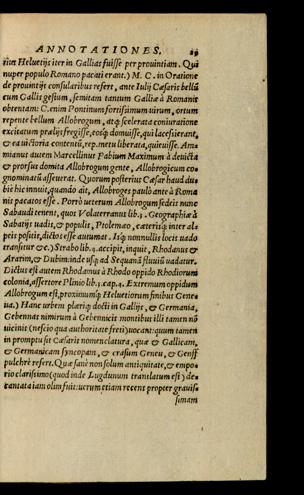 ANNOTATIONES. 19
rum Heluetijs iter in Gallias fuisse per prouintiam. Qui
nuper populo Romano pacati erant.) M. C. in Oratione
de prouintijs consularibus refert, ante Iulij Cæsaris bellũ
cum Gallis gestum, semitam tantum Galliæ à Romanis
obtentam: C. enim Pontinum fortissimum uirum, ortum
repente bellum Allobrogum, atq; scelerata coniuratione
excitatum prælijs fregisse, eosq; domuisse, qui lacesierant,
& ea uictoria contentũ, rep. metu liberata, quieuisse. Am-
mianus autem Marcellinus Fabium Maximum à deuicta
& prorsus domita Allobrogum gente, Allobrogicum co-
gnominatũ asseuerat. Quorum posterius Cæsar haud du-
biè hic innuit, quando ait, Allobroges paulò ante à Roma
nis pacatos esse. Porrò ueterum Allobrogum sedem nunc
Sabaudi tenent, quos Volaterranus lib. 4. Geographiæ à
Sabatijs uadis, & populis, Ptolemæo, cæterisq; inter al-
peis positis, dictos esse autumat. Isq; nonnullis locis uado
transitur &c.) Strabo lib. 4. accipit, inquit, Rhodanus &
Ararim, & Dubim: inde usq; ad Sequanã fluuiũ uadatur.
Dictus est autem Rhodanus à Rhodo oppido Rhodiorum
colonia, assertore Plinio lib. 3. cap. 4. Extremum oppidum
Allobrogum est, proximumq; Heluetiorum finibus Gene-
ua.) Hanc urbem pleriq; docti in Gallijs, & Germania,
Gebennas nimirum à Gebennicis montibus illi tamen nõ
uicinis (nescio qua authoritate freti) uocant: quum tamen
in promptu sit Cæsaris nomenclatura, quæ & Gallicam,
& Germanicam syncopam, & crasum Geneu, & Genff
pulchrè refert. Quæ sanè non solum antiquitate, & empo-
rio clarissimo (quod inde Lugdunum translatum est) de-
cantata iam olim fuit: uerum etiam recent propter grauis-
simam